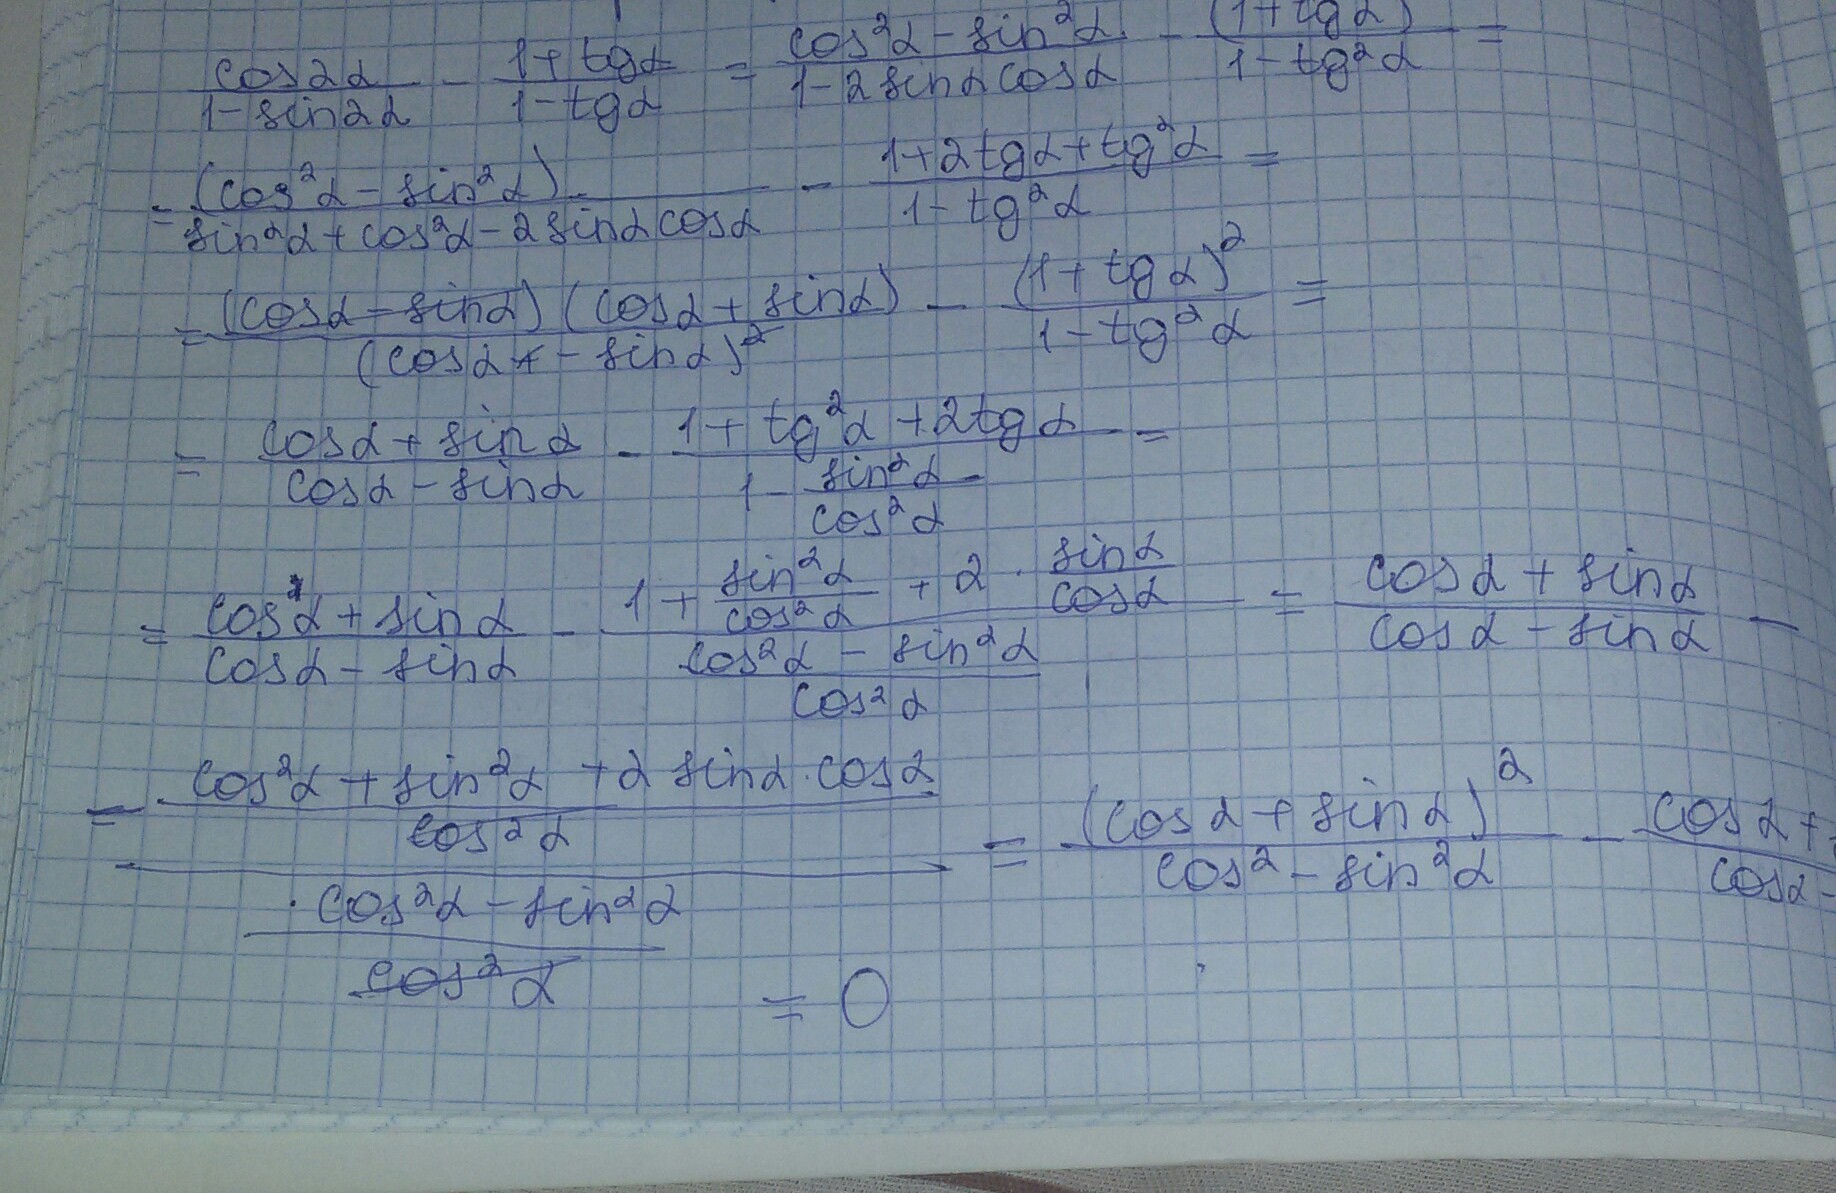 cos2α/(1-sin2α) - (1+tgα)/(1-tgα) = (cos²α-sin²α)/(1-2sinαcosα) - (1+tgα)/(1-tg²α) =
= (cos²α-sin²α)/(sin²α+cos²α-2sinαcosα) - (1+2tgα+tg²α)/(1-tg²α) =
= (cosα-sinα)(cosα+sinα)/(cosα-sinα)² - (1+tgα)²/(1-tg²α) =
= (cosα+sinα)/(cosα-sinα) - (1+tg²α+2tgα)/(1-sin²α/cos²α) =
= (cosα+sinα)/(cosα-sinα) - (1+sin²α/cos²α+2·sinα/cosα)/((cos²α-sin²α)/cos²α) = (cosα+sinα)/(cosα-sinα) -
- ((cos²α+sin²α+2sinα·cosα)/cos²α)/((cos²α-sin²α)/cos²α) = (cosα+sinα)²/(cos²-sin²α) - (cosα+)/(cosα-)
= 0